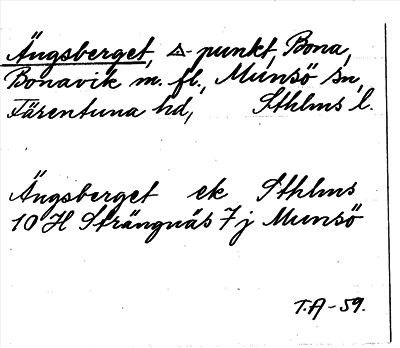 Ängsberget, △-punkt, Bona,
Bonavik m. fl., Munsö sn,
Färentuna hd, Sthlms l.
Ängsberget ek Sthlms
10 H Strängnäs 7 j Munsö
T.A-59.